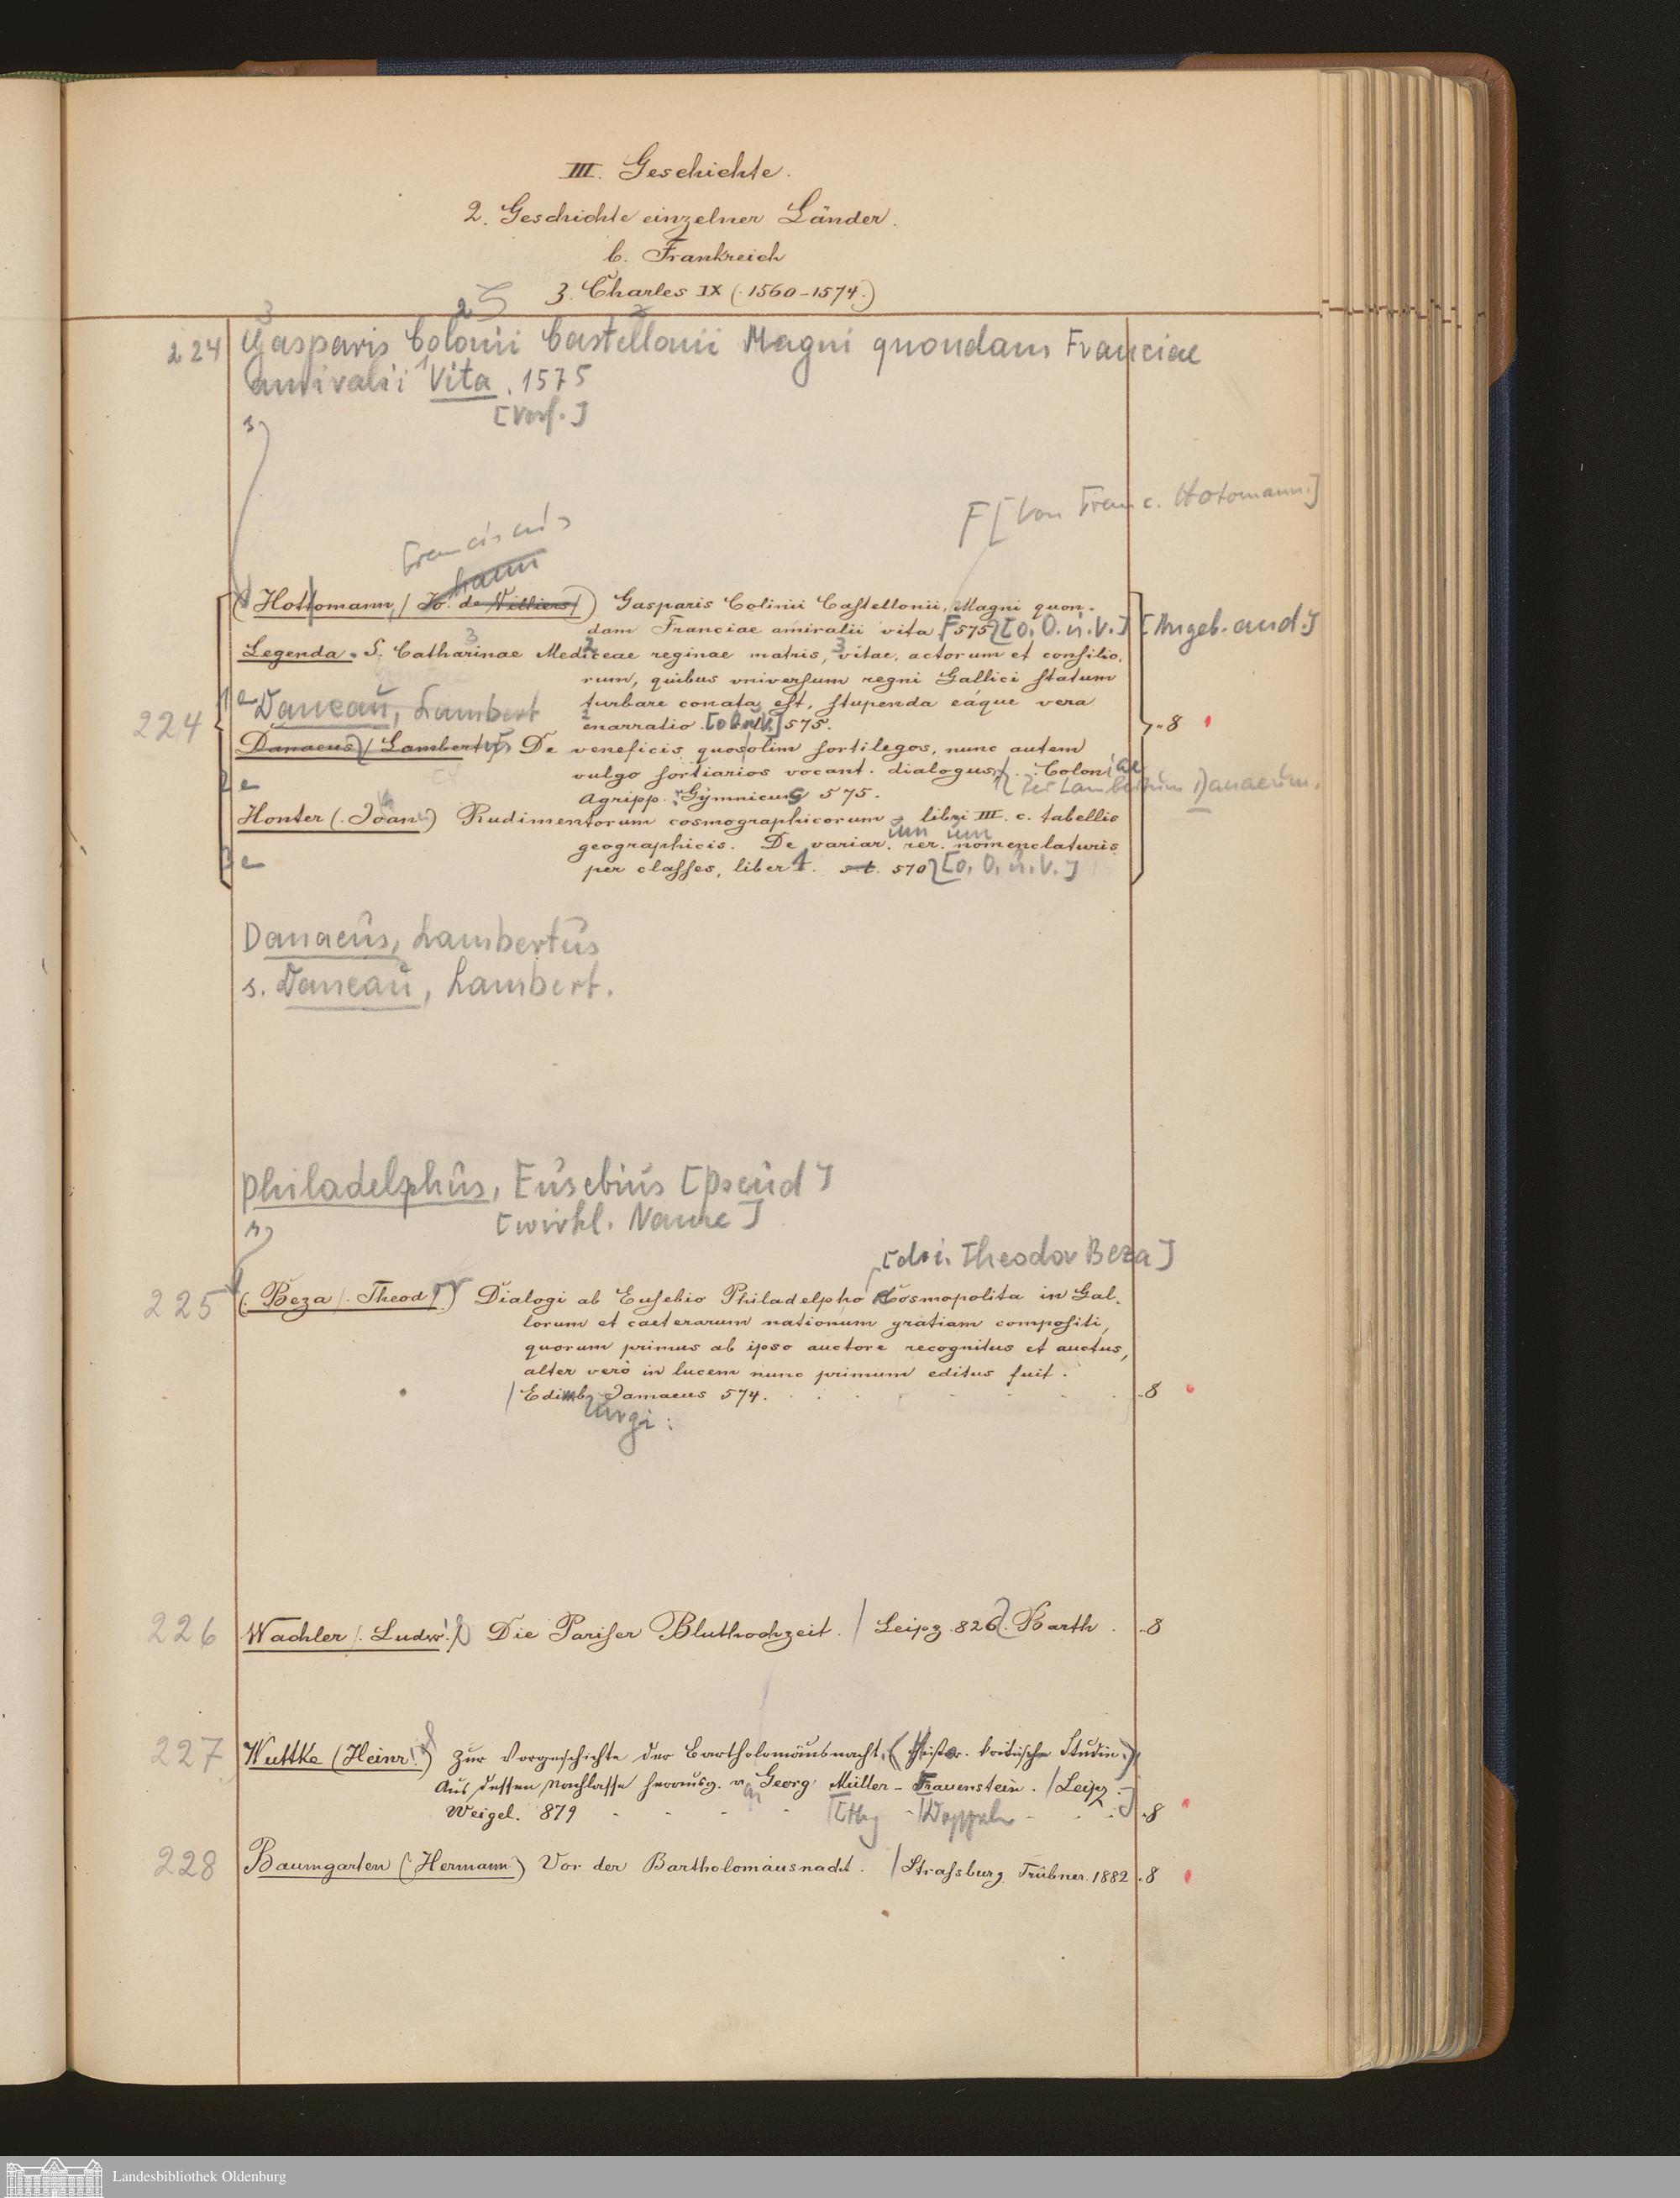 III. Geschichte.
2. Geschichte einzelner Länder.
b. Frankreich
3. Charles IX (. 1560-1574.)
224 Gasparis Colonii Castellonii Magni quondam Franciae
amiralii Vita. 1575
[Verf.]
F [Von Franc. Hotomann.]
Franciscus
(Hottomann, /. Jo. de Villiers/) Gasparis Colinii Castellonii, Magni quon-
dam Franciae amiralii vita 575 [o. O. u. V.] [Angeb. and.]
Legenda. S. Catharinae Mediceae reginae matris, vitae, actorum et consilio-
rum, quibus vniversum regni Gallici statum
1e Daneau, Lambert turbare conata est, stupenda eáque vera
224 enarratio. [o. O. u. V.] 575. ..8
Danaeus /. Lambertus De veneficis quos olim sortilegos, nunc autem
vulgo sortiarios vocant. dialogus. Coloniae
[Per Lambertum Danaeum.
2e Agripp. Gymnicus 575.
Honter (. Joan.) Rudimentorum cosmographicorum libri III. c. tabellis
geographicis. De variar. rer. nomenclaturis
um um
3e per classes, liber 1. s. t. 570 [o. O. u. V.]
Danaeus, Lambertus
s. Daneau, Lambert.
Philadelphus, Eusebius [Pseud]
[wirkl. Name]
[d. i. Theodor Beza]
225 (. Beza /. Theod.) Dialogi ab Eusebio Philadelpho Cosmopolita in Gal-
lorum et caeterarum nationum gratiam compositi,
quorum primus ab ipso auctore recognitus et auctus,
alter verò in lucem nunc primum editus fuit.
/ Edimb. Jamaeus 574. ..8
urgi:
226 Wachler /. Ludw. Die Pariser Bluthochzeit. / Leipz. 826. Barth. ..8
227 Wuttke (Heinr.) Zur Vorgeschichte der Bartholomäusnacht, (Histor. kritische Studie.)
Aus dessen Nachlasse herausg. v. Georg Müller-Frauenstein. / Leipz.
Weigel. 879 .8
228 Baumgarten (Hermann) Vor der Bartholomäusnacht. / Strassburg Trübner. 1882 .8
Landesbibliothek Oldenburg